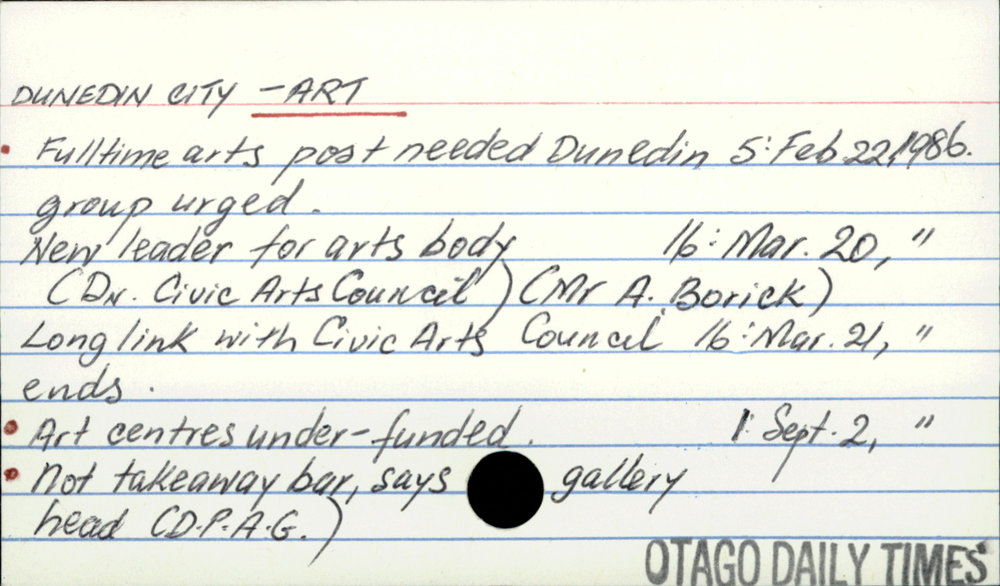 DUNEDIN CITY - ART
• Fulltime arts post needed Dunedin 5: Feb 22, 1986.
group urged.
New leader for arts body 16: Mar. 20, "
(Dn. Civic Arts Council) (Mr A. Borick)
Long link with Civic Arts Council 16: Mar. 21, "
ends.
• Art centres under-funded. 1: Sept. 2, "
• Not takeaway bar, says gallery
head (D.P.A.G.)
OTAGO DAILY TIMES